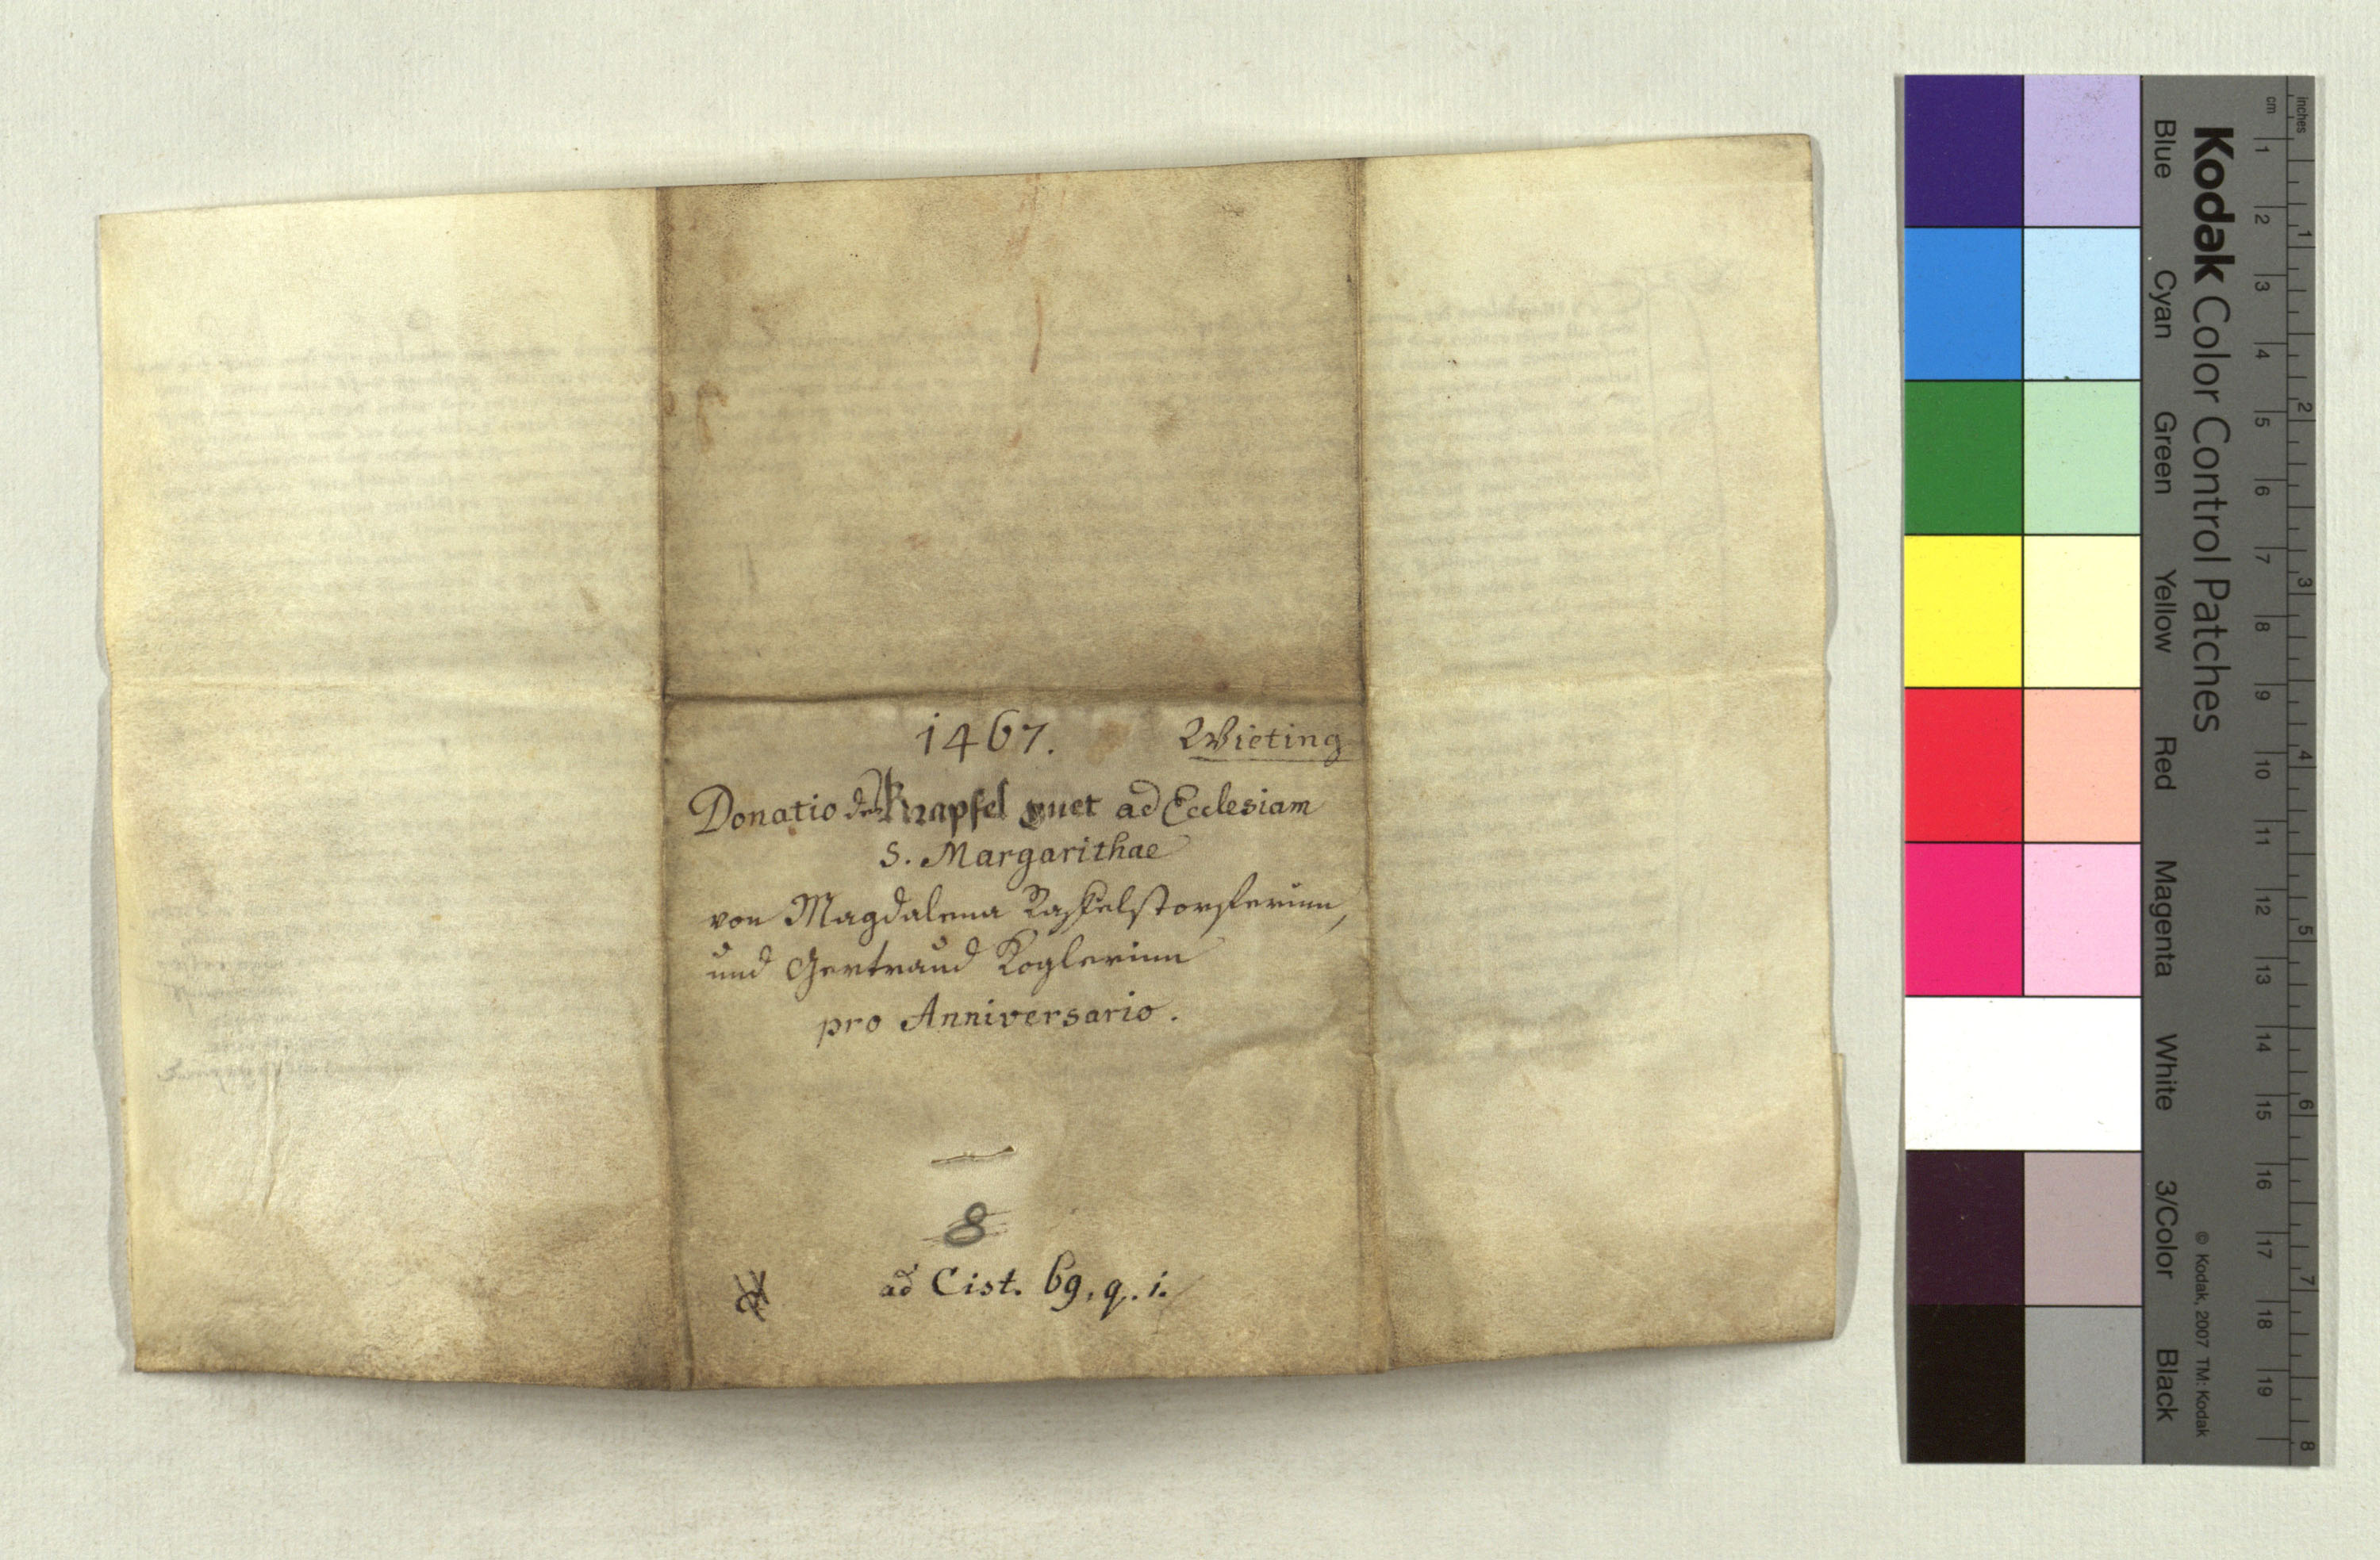 1467. Wieting
Donatio des Krapfel guet ad Ecclesiam
S. Margarithae
von Magdalena
und Gertraud Koglerinn
pro Anniversario.
8
ad Cist. 69, q. i.
Kodak Color Control Patches
Blue Cyan Green Yellow Red Magenta White 3/Color Black
© Kodak, 2007 TM: Kodak
cm 1 2 3 4 5 6 7 8 9 10 11 12 13 14 15 16 17 18 19
inches 1 2 3 4 5 6 7 8